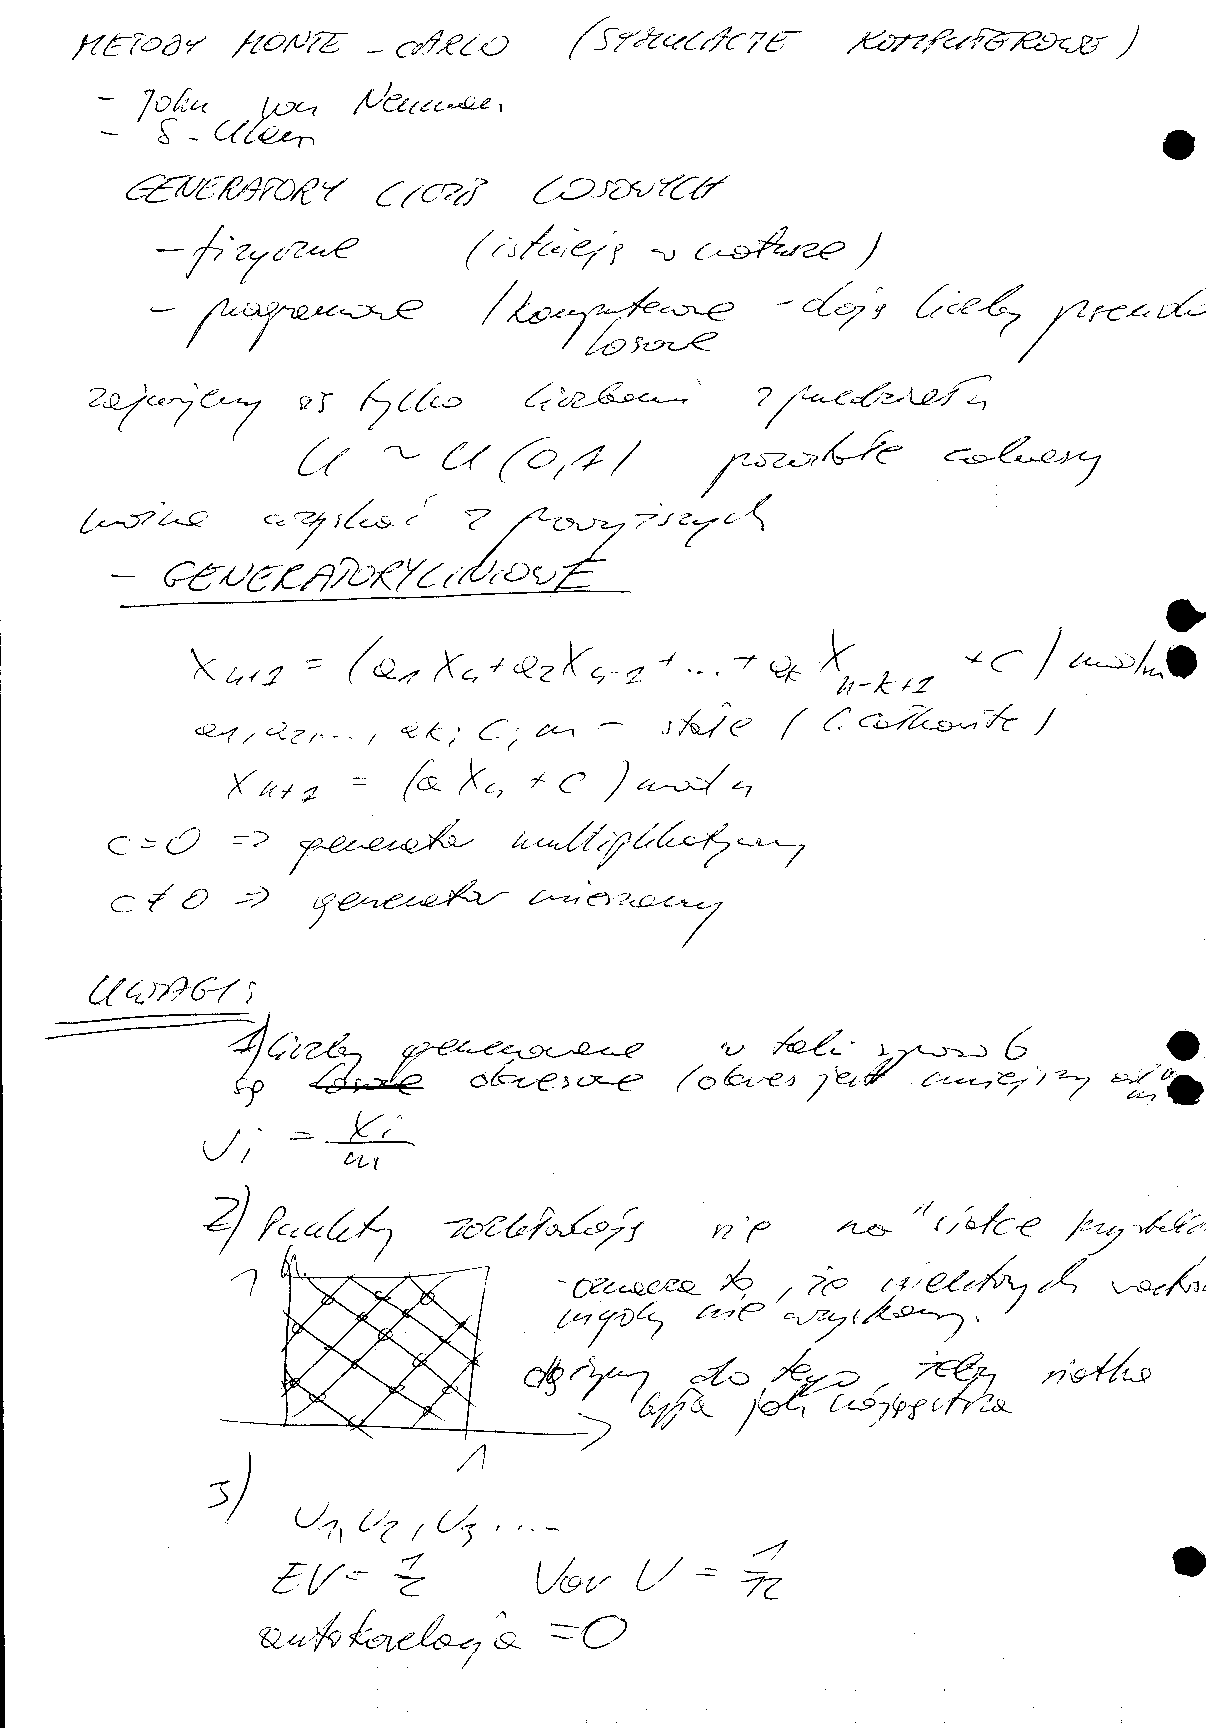 METODY MONTE-CARLO (SYMULACJE KOMPUTEROWE)
- John von Neumann
- S. Ulam
GENERATORY LICZB LOSOWYCH
- fizyczne (istnieją w naturze)
- programowe / komputerowe - dają liczby pseudo
losowe
zajmijmy się tylko liczbami z przedziału
U ~ U(0,1) pozostałe
można uzyskać z powyższych
- GENERATORY LINIOWE
X_{n+1} = (a_1 X_n + a_2 X_{n-1} + ... + a_k X_{n-k+1} + c) mod m
a_1, a_2, ..., a_k; c; m - stałe (l. całkowite)
X_{n+1} = (a X_n + c) mod m
c = 0 => generator multiplikatywny
c ≠ 0 => generator mieszany
UWAGI:
1) liczby generowane w taki sposób
są okresowe (okres jest mniejszy od m
U_i = X_i / m
2) Punkty rozkładają się na "siatce
1
- oznacza to, że niektórych
nigdy nie uzyskamy.
dążymy do tego, żeby siatka
była jak najgęstsza
1
3)
U_1, U_2, U_3 ....
EU = 1/2 Var U = 1/12
autokorelacja = 0